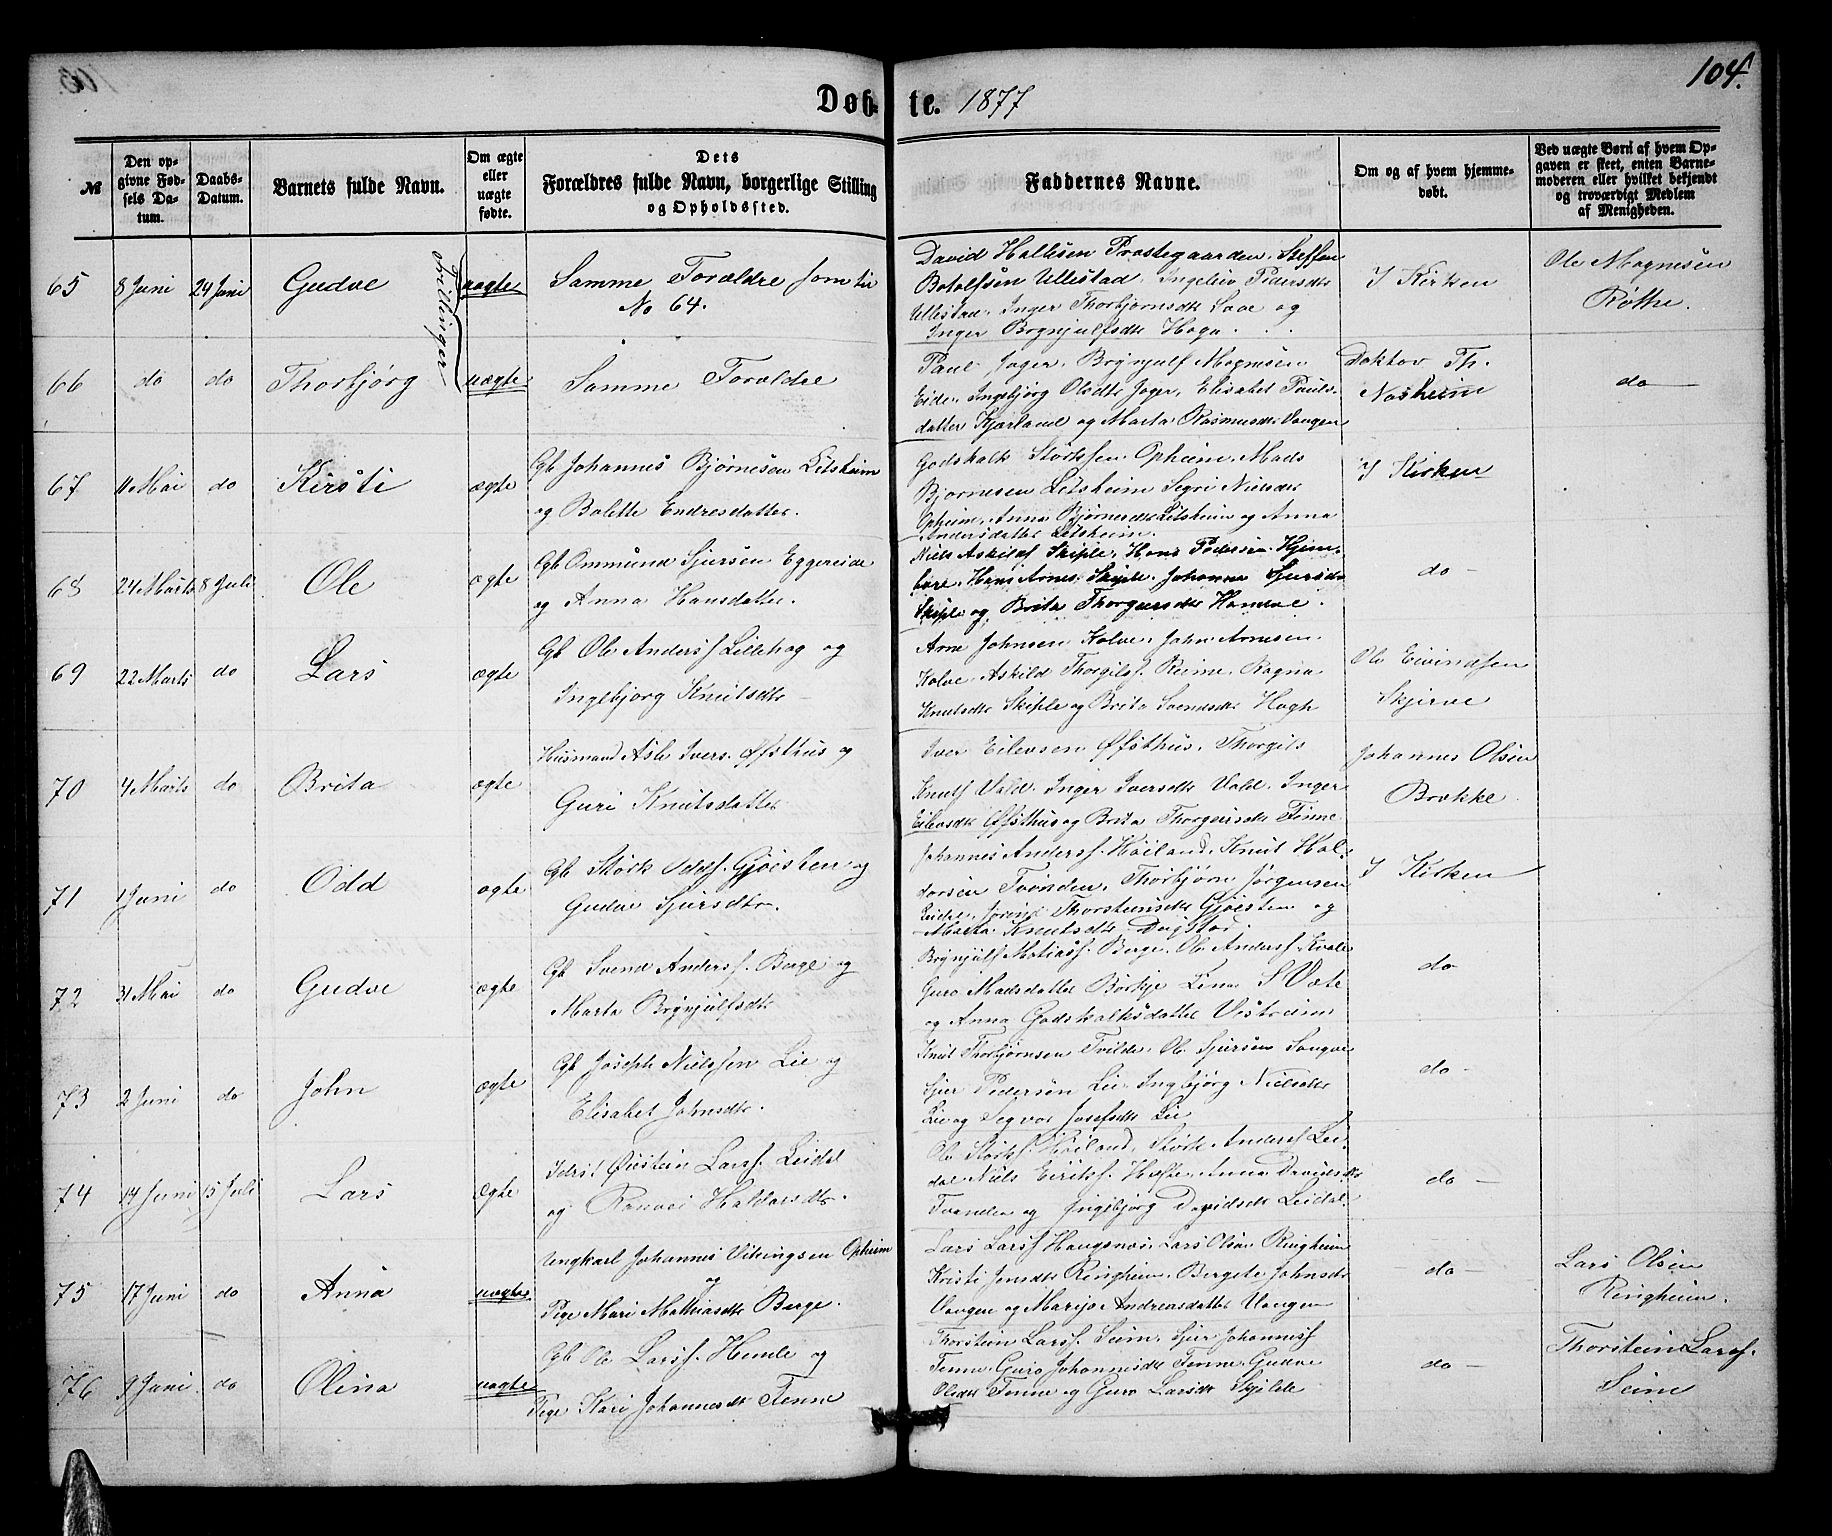 104.
Døb- te. 1877
№
Den opgivne Fødsels Datum.
Daabs-Datum.
Barnets fulde Navn.
Om ægte eller uægte fødte.
Dets Forældres fulde Navn, borgerlige Stilling og Opholdssted.
Faddernes Navne.
Om og af hvem hjemmedøbt.
Ved uægte Børn af hvem Opgaven er skeet, enten Barnemoderen eller hvilket bekjendt og troværdigt Medlem af Menigheden.
Trillinger
65 8 Juni 24 Juni Gudve uægte
Samme Forældre som til
No 64.
David Hallesen Prestegaarden, Steffen
Botolfsen Ullestad, Ingeleiv Pedersdtr
Ullestad, Inger Thorbjørnsdtr Love og
Inger Brynjulfsdtr Haga.
I Kirken
Ole Magnesen
Røthe.
66 do do Thorbjørg uægte
Samme Forældre
Paul Jager, Brynjulf Magnesen
Eide, Ingebjørg Olsdtr Jager, Elisabet Pauls-
datter Kjærland og Marta Rasmusdtr Vangen
Doktor Th.
Næsheim
do
67 11 Mai do Kirsti ægte
Gb Johannes Bjørnesen Litsheim
og Bolette Endresdatter.
Godskalk Størksen Opheim, Mads
Bjørnesen Litsheim Segri Nielsdtr
Opheim, Anna Bjørnesdtr Litsheim og Anna
Andersdatter Litsheim.
I Kirken
68 24 Marts 8 Juli Ole ægte
Gb Ommund Sjursen Eggereide
og Anna Hansdatter.
Niels Askildsf Skiple, Hans Pedersen Hjem-
bære, Hans Arnes. Skiple, Johanna Sjursdtr
Skiple og Brita Thorgeirsdtr Hamre.
do
69 22 Marts do Lars ægte
Gb Ole Andersf Lillehag og
Ingebjorg Knutsdtr
Arne Johnsen Kolve, John Arnesen
Kolve, Askild Thorgilsf. Reime, Ragna
Knutsdtr Skiple og Brita Svendsdtr Hagh
Ole Eivindsen
Skjerve
70 4 Marts do Brita ægte
Husmand Asle Ivers. Øfsthus og
Guri Knutsdatter
Iver Eilevsen Øfsthus, Thorgils
Knutsf Vold, Inger Iversdtr Vold, Inger
Eilevsdtr Øfsthus og Brita Thorgeirsdtr Finne
Johannes Olsen
Brekke
71 1 Juni do Odd ægte
Gb Størk Oddsf. Gjøestein og
Gudve Sjursdtr.
Johannes Andersf. Høiland, Knut Hal-
dorsen Tvinden, Thorbjørn Jørgensen
Leidre, Jorind Thorsteinsdtr Gjøesten og
Marta Knutsdtr
I Kirken
72 31 Mai do Gudve ægte
Gb Svend Andersf. Berge og
Marta Brynjulfsdtr
Brynjulf Mathiasf. Berge, Ole Andersf Kvale
Guro Madsdatter Børkje Lina S Væte
og Anna Godskalksdatter Vestreim
do
73 2 Juni do John ægte
Gb Joseph Nielssen Lie og
Elisabet Johnsdtr.
Knut Thorbjørnsen Tvilde, Ole Sjursen Songve
Sjur Pedersen Lie, Ingebjørg Nielsdtr
Lie og Segvor Josefsdtr Lie
do
74 14 Juni 15 Juli Lars Ægte
Idrst Øistein Larsf. Leidal
og Ranvei Haldorsdtr.
Ole Størksf. Høiland, Størk Andersf Lei-
dal Niels Eiriksf. Hæfte, Anna Davidsdtr
Tvinden og Ingebjørg Davidsdtr Leidal
do
75 17 Juni do Anna uægte
Ungkarl Johannes Vikingsen Opheim
og
Pige Mari Mathiasdtr Berge.
Lars Larsf Haugsnæs, Lars Olsen Ringheim
Kristi Jensdtr Ringheim, Bergete Johnsdtr
Vangen og Marijo Andreasdatter Vangen
do
Lars Olsen
Ringheim.
76 9 Juni do Olina uægte
Gb Ole Larsf. Hemle og
Pige Kari Johannesdtr Fenne
Thorstein Larsf. Seim, Sjur Johannesf
Fenne, Guro Johannesdtr Fenne, Gudve
Olsdtr Fenne og Guro Larsdtr Skjelde
do
Thorstein Larsf.
Seim